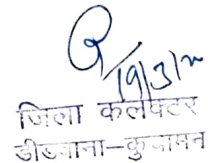 19/3/
जिला कलेक्टर
डीडवाना-कुचामन